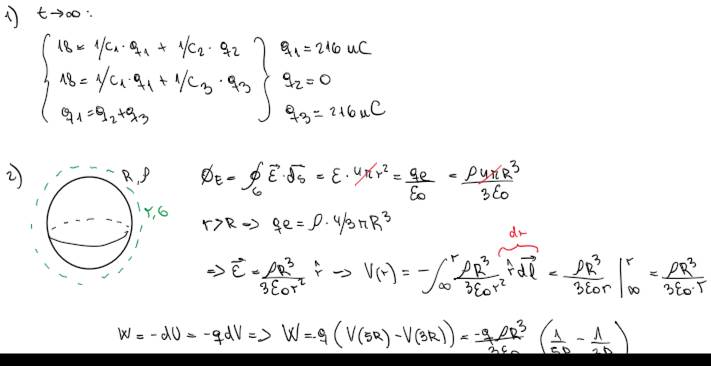 1) t→∞:
18 = 1/C₁·q₁ + 1/C₂·q₂
18 = 1/C₁·q₁ + 1/C₃·q₃
q₁ = q₂+q₃
q₁ = 216 uC
q₂ = 0
q₃ = 216 uC
2) R, ρ
r, G
Ø_E = ∮_G E⃗·ds⃗ = E·4πr² = qe/ε₀ = ρ4πR³/3ε₀
r>R → qe = ρ·4/3πR³
dr
⇒ E⃗ = ρR³/3ε₀r² r̂ → V(r) = -∫_∞^r ρR³/3ε₀r² r̂ dl⃗ = ρR³/3ε₀r |_∞^r = ρR³/3ε₀·r
W = -dU = -qdV ⇒ W = -q (V(5R) - V(3R)) = -q ρR³/3ε₀ (1/5R - 1/3R)